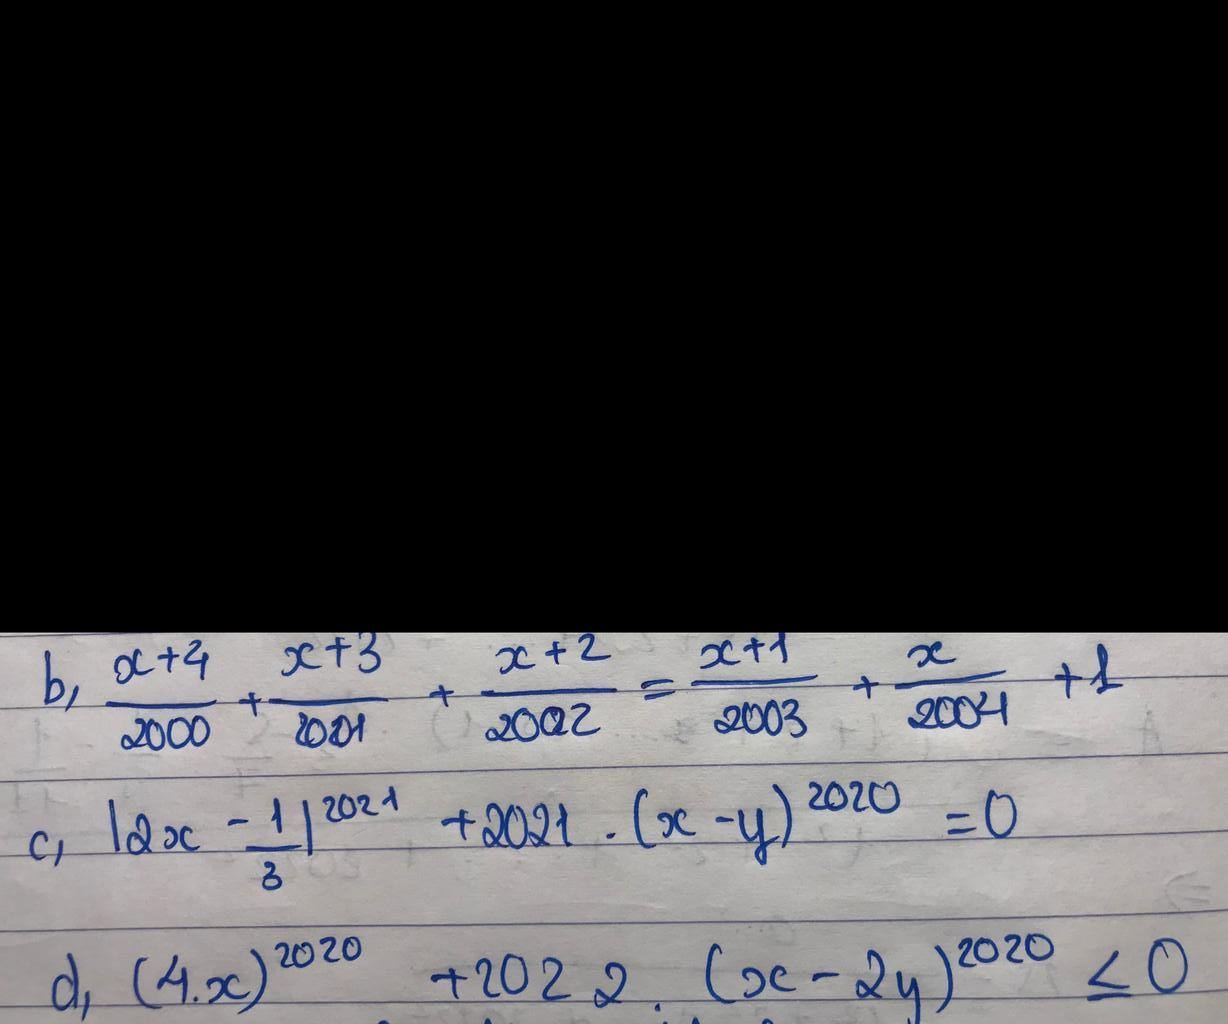 b, x+4/2000 + x+3/2001 + x+2/2002 = x+1/2003 + x/2004 +1
c, |2x - 1/3|^2021 +2021 . (x-y)^2020 =0
d, (4.x)^2020 +2022. (x-2y)^2020 ≤ 0